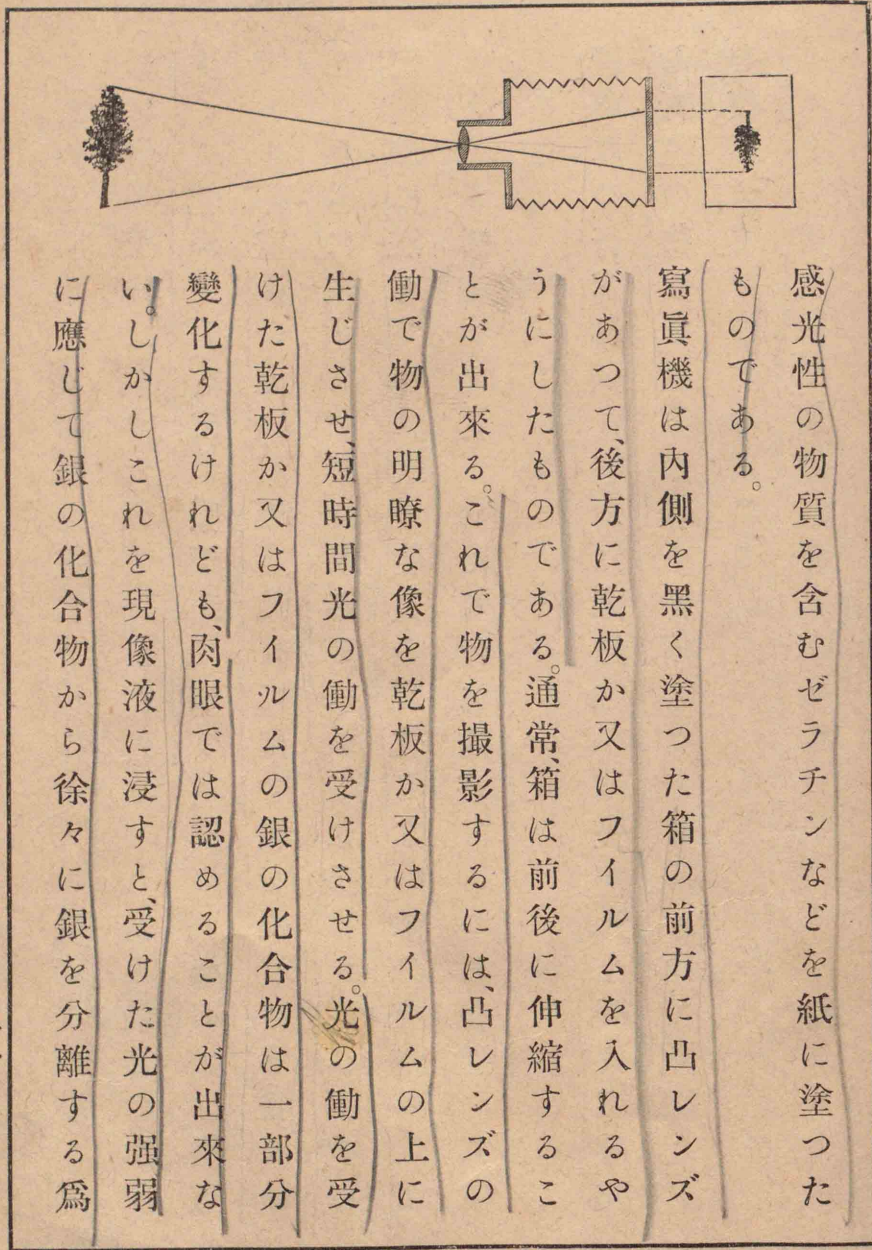 感光性の物質を含むゼラチンなどを紙に塗つた
ものである。
寫眞機は內側を黑く塗つた箱の前方に凸レンズ
があつて、後方に乾板か又はフイルムを入れるや
うにしたものである。通常、箱は前後に伸縮するこ
とが出來る。これで物を撮影するには、凸レンズの
働で物の明瞭な像を乾板か又はフイルムの上に
生じさせ、短時間光の働を受けさせる。光の働を受
けた乾板か又はフイルムの銀の化合物は一部分
變化するけれども、肉眼では認めることが出來な
い。しかしこれを現像液に浸すと、受けた光の强弱
に應じて銀の化合物から徐々に銀を分離する爲